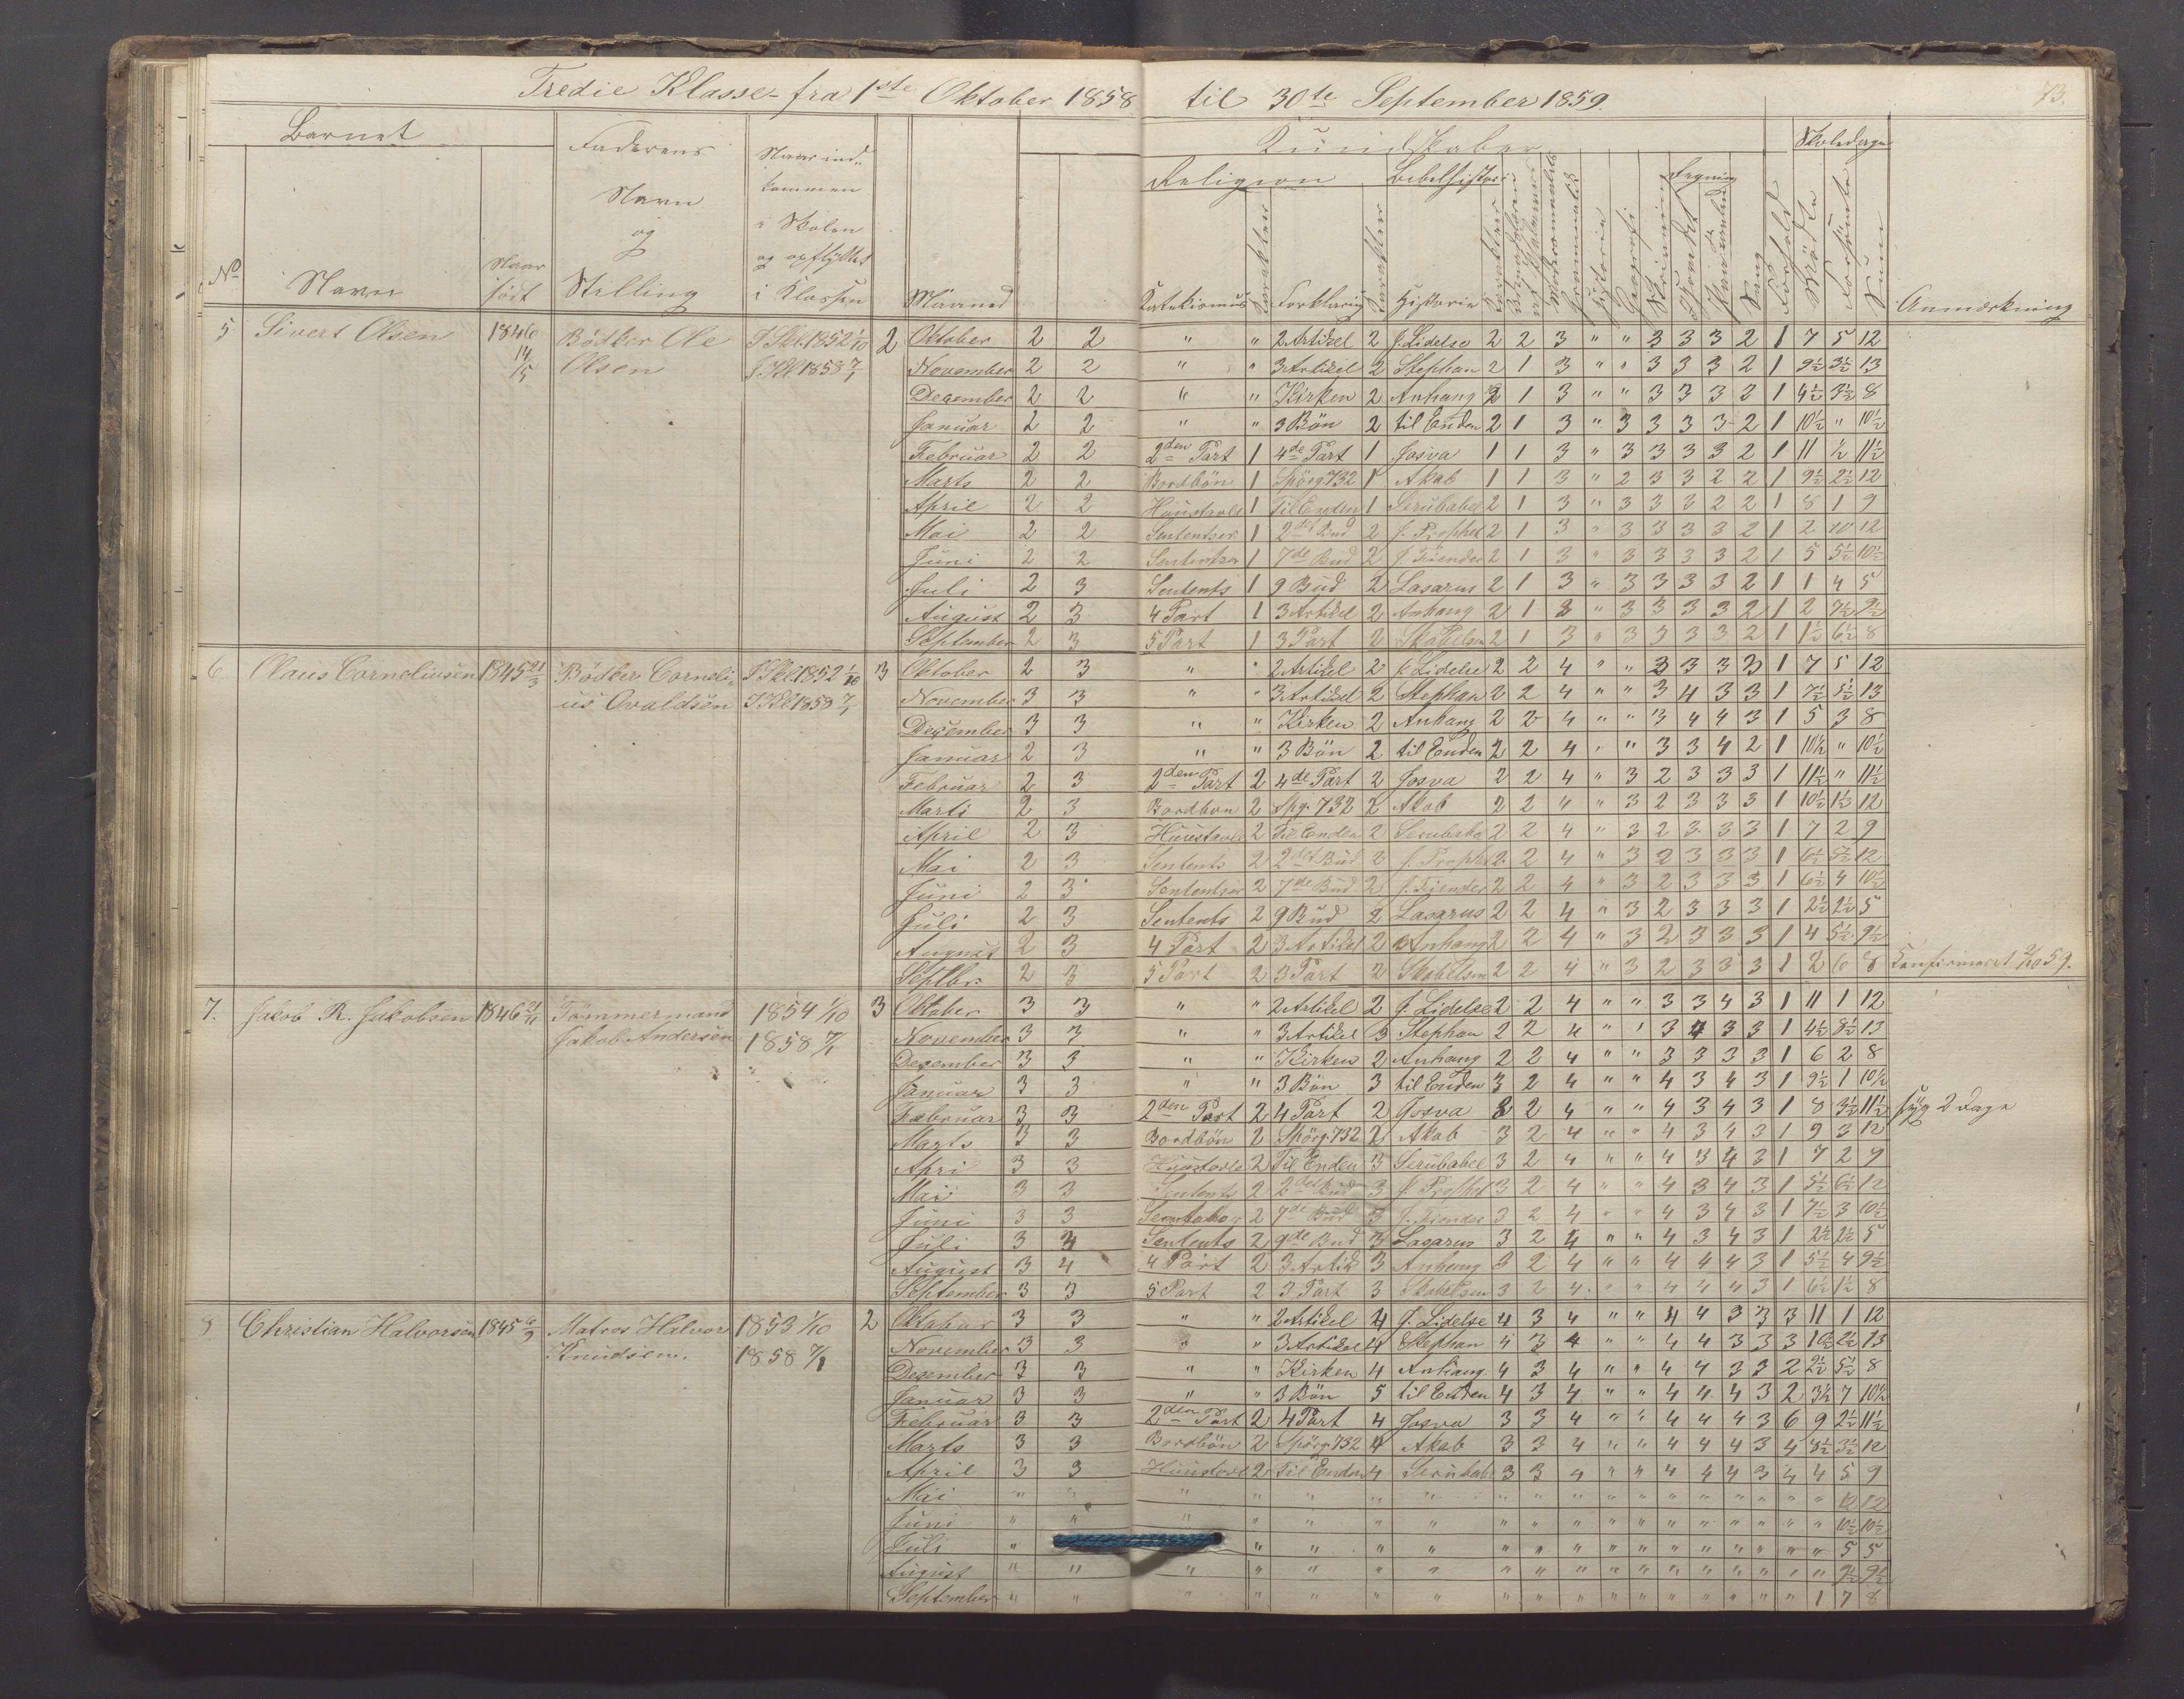 Tredie Klasse fra 1ste Oktober 1858 til 30te September 1859. 73.
Barnet Faderens Naar ind- Kundskaber Skoledage
Navn kommen Religion Bibelhistorie Regning
og i Skolen
No Navn Naar født Stilling og opflyttet i Klassen Maaned Katekismus Karakter Forklaring Karakter Historie Karakter Historie Geografi Skrivning Sang Forhold Mødte Forsømte Sum Anmærkning
5 Sivert Olsen 1846 Bødker Ole I Skl. 1852 1/10 2 Oktober 2 2 " " 2 Artikel 2 J. Lidelse 2 2 3 " " 3 3 3 2 1 7 5 12
14/5 Olsen I Kl 1858 7/1 November 2 2 " " 3 Artikel 2 Stephan 2 1 3 " " 3 3 3 2 1 9½ 3½ 13
December 2 2 " " Kirken 2 Anhang 2 1 3 " " 3 3 3 2 1 4½ 3½ 8
Januar 2 2 " " 3 Bön 2 til Enden 2 1 3 " 3 3 3 3 2 1 10½ " 10½
Februar 2 2 2den Part 1 4de Part 1 Josva 1 1 3 " 3 3 3 3 2 1 11 ½ 11½
Marts 2 2 Bordbön 1 Spörg. 732 1 Akab 1 1 3 " 2 3 3 2 2 1 9½ 2½ 12
April 2 2 Huustavle 1 Til Enden 1 Serubabel 2 1 3 " 3 3 3 2 2 1 8 1 9
Mai 2 2 Sententser 1 2det Bud 2 J. Prophet 2 1 3 " 3 3 3 3 2 1 2 10 12
Juni 2 2 Sententser 1 7de Bud 2 J. Fiender 2 1 3 " 3 3 3 3 2 1 5 5½ 10½
Juli 2 3 Sentents 1 9 Bud 2 Lasarus 2 1 3 " 3 3 3 3 2 1 1 4 5
August 2 3 4 Part 1 3 Artikel 2 Anhang 2 1 3 " 3 3 3 3 2 1 2 7½ 9½
September 2 3 5 Part 1 3 Part 2 Skabelsen 2 1 3 " 3 3 3 3 2 1 1½ 6½ 8
6. Claus Corneliusen 1845 21/3 Bødker Corneli- I Skl 1852 1/10 3 Oktober 2 3 " " 2 Artikel 2 J. Lidelse 2 2 4 " " 3 3 3 3 1 7 5 12
us Ovaldsen I Kl 1858 7/1 November 3 3 " " 3 Artikel 2 Stephan 2 2 4 " " 3 4 3 3 1 7½ 5½ 13
December 3 3 " " Kirken 2 Anhang 2 2 4 " " 3 4 4 3 1 5 3 8
Januar 2 3 " " 3 Bön 2 til Enden 2 2 4 " " 3 3 4 2 1 10½ " 10½
Februar 2 3 2den Part 2 4de Part 2 Josva 2 2 4 " 3 2 3 3 3 1 11½ " 11½
Marts 2 3 Bordbön 2 Spg. 732 2 Akab 2 2 4 " 3 2 3 3 3 1 10½ 1½ 12
April 2 3 Huustavle 2 Til Enden 2 Serubabe 2 2 4 " 3 2 3 3 3 1 7 2 9
Mai 2 3 Sentents 2 2det Bud 2 J. Prophet 2 2 4 " 3 2 3 3 3 1 6½ 5½ 12
Juni 2 3 Sententser 2 7de Bud 2 J. Fiender 2 2 4 " 3 2 3 3 3 1 6½ 4 10½
Juli 2 3 Sentents 2 9 Bud 2 Lasarus 2 2 4 " 3 2 3 3 3 1 2½ 2½ 5
August 2 3 4 Part 2 3 Artikel 2 Anhang 2 2 4 " 3 2 3 3 3 1 4 5½ 9½
Septbr. 2 3 5 Part 2 3 Part 2 Skabelsen 2 2 4 " 3 2 3 3 3 1 2 6 8 Confirmeret 2/10 59.
7. Jakob R. Jakobsen 1846 21/11 Tömmermand 1854 1/10 3 Oktober 3 3 " " 2 Artikel 2 J. Lidelse 2 2 4 " " 3 3 4 3 1 11 1 12
Jakob Andersen 1858 7/1 November 3 3 " " 3 Artikel 3 Stephan 2 2 4 " " 3 4 3 3 1 4½ 8½ 13
December 3 3 " " Kirken 2 Anhang 2 2 4 " " 3 3 3 3 1 6 2 8
Januar 3 3 " " 3 Bön 3 til Enden 3 2 4 " " 4 3 4 3 1 9½ 1 10½
Februar 3 3 2den Part 2 4 Part 2 Josva 2 2 4 " " 4 3 4 3 1 8 3½ 11½ syg 2 Dage
Marts 3 3 Bordbön 2 Spörg. 732 2 Akab 3 2 4 " " 4 3 4 3 1 9 3 12
Apri 3 3 Huustavle 2 Til Enden 3 Serubabel 3 2 4 " " 4 3 4 3 1 7 2 9
Mai 3 3 Sentents 2 2det Bud 3 J. Prophet 3 2 4 " " 4 3 4 3 1 5½ 6½ 12
Juni 3 3 2 7de Bud 3 J. Fiender 3 2 4 " " 4 3 4 3 1 7½ 3 10½
Juli 3 4 Sentents 2 9de Bud 3 Lasarus 3 2 4 " " 4 3 4 3 1 2½ 2½ 5
August 3 4 4 Part 2 3 Artik 3 Anhang 3 2 4 " " 4 4 4 3 1 5½ 4 9½
September 3 3 5 Part 2 3 Part 3 Skabelsen 3 2 4 " " 4 4 4 3 1 6½ 1½ 8
8. Christian Halvorsen 1845 6/9 Matros Halvor 1853 1/10 2 Oktober 3 3 " " 2 Artikel 4 J. Lidelse 4 3 4 " " 4 4 3 3 3 11 1 12
Knudsen. 1858 7/1 November 3 3 " " 3 Artikel 4 Stephan 4 3 4 " " 4 4 3 3 3 10½ 2½ 13
December 3 3 " " Kirken 4 Anhang 4 3 4 " " 4 4 3 3 2 2½ 5½ 8
Januar 3 3 " " 3 Bön 5 til Enden 4 3 4 " " 4 4 4 3 2 3½ 7 10½
Februar 3 3 2den Part 2 4 Part 4 Josva 3 3 4 " " 4 4 4 3 6 9 2½ 11½
Marts 3 3 Bordbön 2 Spörg. 732 4 Akab 3 3 4 " " 4 4 4 3 4 8½ 3½ 12
April 3 3 Huustavl 2 Til Enden 4 Serubabe 3 3 4 " " 4 4 4 3 4 4 5 9
Mai " " " " " " " " " " " " " " " " " " 12 12
Juni " " " " " " " " " " " " " " " " " 10½ 10½
Juli " " " " " " " " " " " " " " " " 5 5
August " " " " " " " " " " " " " " " " " " 9½ 9½
September " " " " " " " " " " " " " " " " " 1 7 8